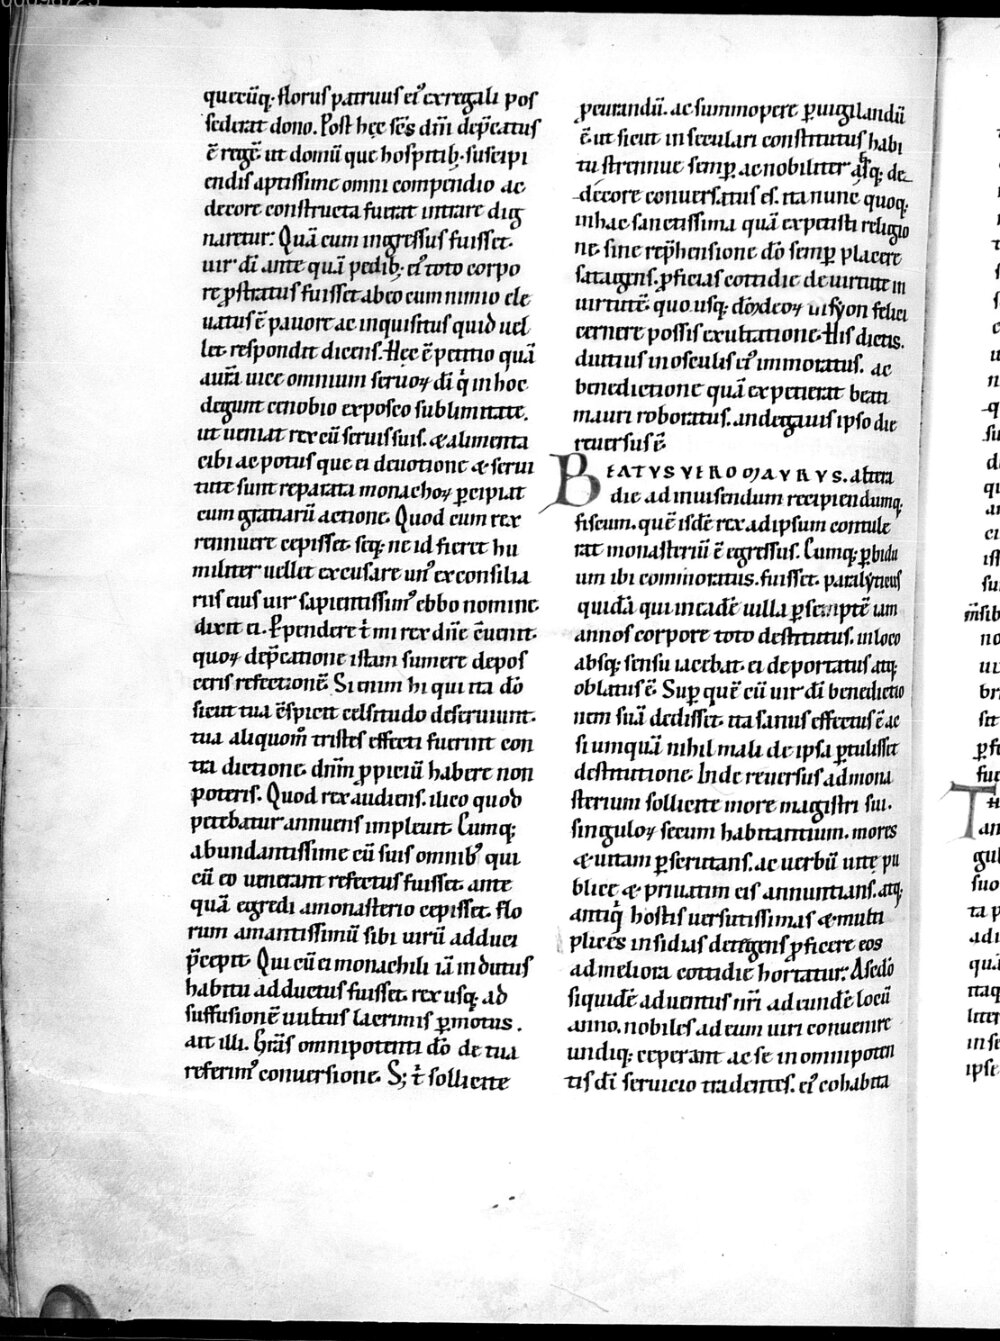 quecūq; florus patruus ei᾽ ex regali pos
sederat dono. Post hęc sc̄s dn̄i dep̄catus
ē regē ut domū que hospitib; suscipi
endis aptissime omni compendio ac
decore constructa fuerat intrare dig
naretur. Quā cum ingressus fuisset.
uir dī ante quā pedib; ei᾽ toto corpo
re ꝓstratus fuisset ab eo cum nimio ele
uatus ē pauore ac inquisitus quid uel
let. respondit dicens. Hęc ē petitio quā
aurā uice omnium seruoꝝ dī q̇ in hoc
degunt cenobio exposco sublimitate.
ut ueniat rex cū seruis suis. & alimenta
cibi ac potus que ei deuotione & serui
tute sunt reparata monachoꝝ ꝑcipiat
cum gratiarū actione. Quod cum rex
rennuere cepisset. seq; ne id fieret hu
militer uellet excusare un᾽ ex consilia
riis eius uir sapientissim᾽ ebbo nomine.
dixit ei. Ꝑpendere t̄ mi rex dn̄e ēuenit.
quoꝝ dep̄catione istam sumere depos
ceris refectionē. Si enim hi qui ita dō
sicut tua ēspicit celsitudo deseruiunt.
tua aliquom̄ tristes effecti fuerint con
tra dictione. dnm̄ ꝓpiciū habere non
poteris. Quod rex audiens. ilico quod
petebatur annuens impleuit. Cumq;
abundantissime cū suis omnib᾽ qui
cū eo uenerant refectus fuisset. ante
quā egredi a monasterio cepisset. flo
rum amantissimū sibi uirū adduci
p̄cepit. Qui cū ei monachili iā indutus
habitu adductus fuisset. rex usq; ad
suffusionē uultus lacrimis ꝑmotus.
ait illi. Gr̄as omnipotenti dō de tua
referim᾽ conuersione. S; t̄ sollicite
peurandū. ac summopere ꝑuigilandū
ē ut sicut in seculari constitutus habi
tu strennue semꝑ ac nobiliter absq; de
decore conuersatus es. ita nunc quoq;
in hac sanctissima quā expetisti religio
ne. sine rep̄hensione dō semꝑ placere
satagens. ꝓficias cottidie de uirtute in
uirtutē. quo usq; dōx deoꝝ in syon felici
cernere possis exultatione. His dictis.
diutius in osculis ei᾽ immoratus. ac
benedictione quā expetierat beati
mauri roboratus. andegauis ipso die
reuersus ē.
BEATVS VERO MAVRVS. altera
die ad inuisendum recipiendumq;
fiscum. quē isdē rex ad ipsum contule
rat monasteriū ē egressus. Cumq; ꝑ bidu
um ibi commoratus. fuisset. paralyticus
quidā qui in eadē uilla ꝑ septē iam
annos corpore toto destitutus. in loco
absq; sensu iacebat. ei deportatus atq;
oblatus ē. Suꝑ quē cū uir dī benedictio
nem suā dedisset. ita sanus effectus ē ac
si umquā nihil mali de ipsa ꝑtulisset
destitutione. Inde reuersus ad mona
sterium sollicite more magistri sui.
singuloꝝ secum habitantium. mores
& uitam ꝑscrutans. ac uerbū uitę pu
blice & priuatim eis annuntians. atq;
antiq̇ hostis uersutissimas & multi
plices insidias detegens ꝓficere eos
ad meliora cottidie hortatur. A sedō
siquidē aduentus nr̄i ad eundē locū
anno. nobiles ad eum uiri conuenire
undiq; ceperant ac se in omnipoten
tis dī seruicio tradentes. ei᾽ cohabita